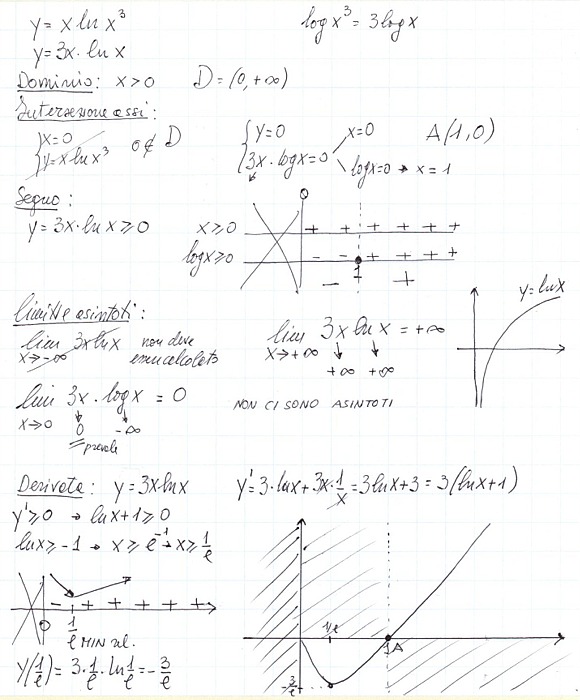 y = x ln x³
log x³ = 3 log x
y = 3x · ln x
Dominio: x > 0 D = (0, +∞)
Intersezione assi:
{ x = 0
{ y = x ln x³
0 ∉ D
{ y = 0
{ 3x · log x = 0
x = 0
log x = 0 → x = 1
A(1, 0)
Segno:
y = 3x · ln x ≥ 0
0
x ≥ 0 + + + + + +
log x ≥ 0 - - + + + +
1
- +
Limiti e asintoti:
lim 3x ln x
x → -∞
non deve
esser calcolato
lim 3x ln x = +∞
x → +∞
+∞ +∞
y = ln x
lim 3x · log x = 0
x → 0
0 -∞
prevale
NON CI SONO ASINTOTI
Derivata: y = 3x ln x
y' = 3 · ln x + 3x · 1/x = 3 ln x + 3 = 3(ln x + 1)
y' ≥ 0 → ln x + 1 ≥ 0
ln x ≥ -1 → x ≥ e⁻¹ → x ≥ 1/e
- + + + + +
0
1/e MIN rel.
y(1/e) = 3 · 1/e · ln 1/e = -3/e
1/e
1 A
-3/e